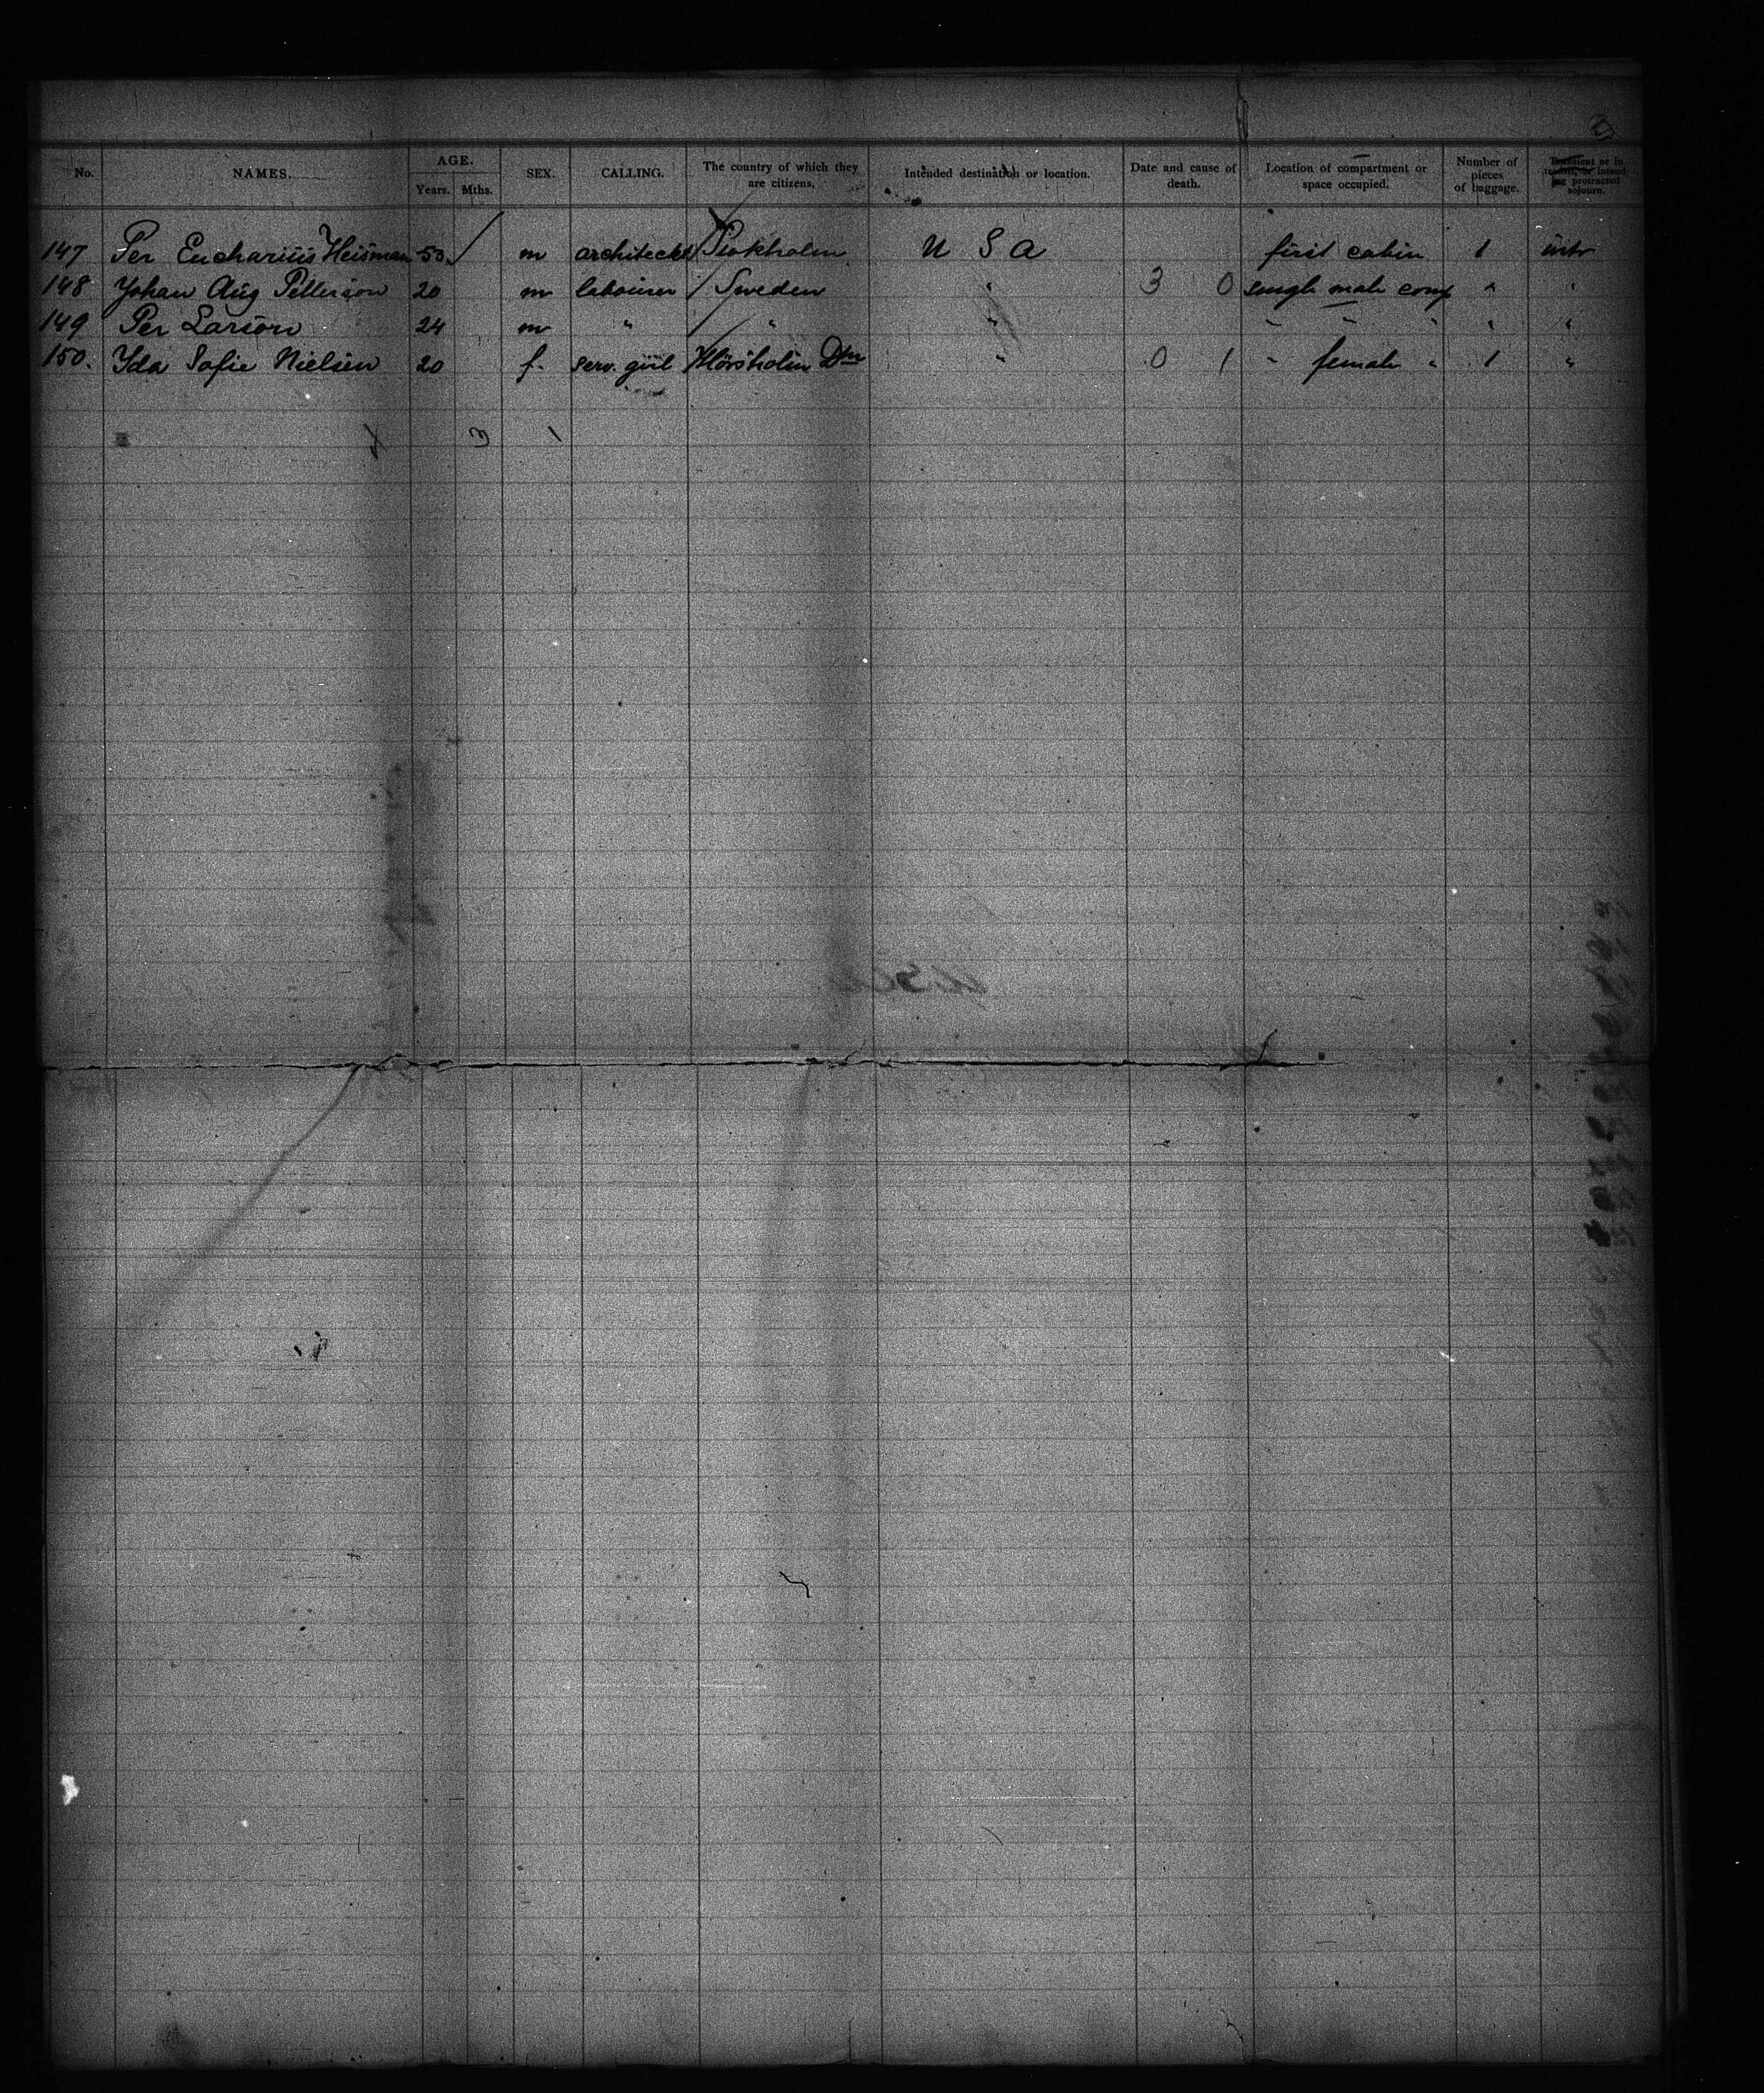 No. NAMES. AGE. Years. Mths. SEX. CALLING. The country of which they are citizens. Intended destination or location. Date and cause of death. Location of compartment or space occupied. Number of pieces of baggage. Transient or in transit, or intending protracted sojourn.
147 Per Eucharius Heisman 53 m architeckt Stokholm U S A first cabin 1
148 Johan Aug Petterson 20 m labourer Sweden " 3 0 single male comp " "
149 Per Larson 24 m " " " " " " " "
150. Ida Sofie Nielsen 20 f. serv. girl Hörsholm Dmr " 0 1 " female " 1 "
3 1